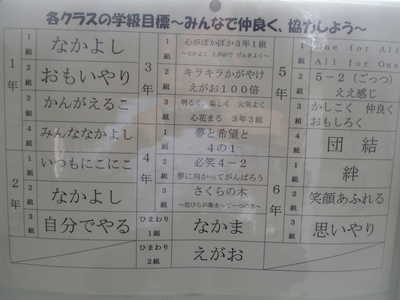 各クラスの学級目標～みんなで仲良く、協力しよう～
1年
1組 なかよし
2組 おもいやり
3組 かんがえるこ
4組 みんななかよし
2年
1組 いつもにこにこ
2組 なかよし
3組 自分でやる
3年
1組 心がぽかぽか3年1組
2組 キラキラかがやけ
えがお100倍
3組 明るく 楽しく 元気よく
心花まる 3年3組
4年
1組 夢と希望と
4の1
2組 必笑4－2
夢に向かってがんばろう
3組 さくらの木
ひまわり
1組 なかま
ひまわり
2組 えがお
5年
1組 One for All
All for One
2組 5－2（ごっつ）
ええ感じ
3組 かしこく 仲良く
おもしろく
4組 団結
6年
1組 絆
2組 笑顔あふれる
3組 思いやり